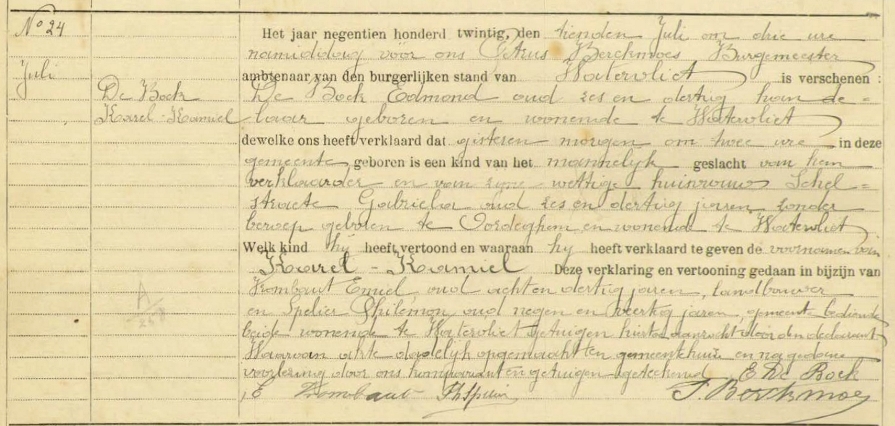 No 24
Juli
De Bock
Karel-Kamiel
Het jaar negentien honderd twintig, den tienden Juli om drie ure
namiddag voor ons Petrus Berckmoes Burgemeester
ambtenaar van den burgerlijken stand van Watervliet is verschenen :
De Bock Edmond oud zes en dertig han de=
laar geboren en wonende te Watervliet
dewelke ons heeft verklaard dat gisteren morgen om twee ure in deze
gemeente geboren is een kind van het mannelijk geslacht van hem
verklaarder en van zyne wettige huisvrouw Schel=
straete Gabriela oud zes en dertig jaren, zonder
beroep geboren te Oordeghem en wonende te Watervliet
Welk kind hy heeft vertoond en waaraan hy heeft verklaard te geven de voornamen van
Karel - Kamiel Deze verklaring en vertooning gedaan in bijzijn van
Rombaut Emiel oud acht en dertig jaren, landbouwer
en Spelier Philemon oud negen en veertig jaren, gemeente bediende
beide wonende te Watervliet getuigen hiertoe aanzocht door den declarant
Waarvan akte dadelijk opgemaakt ten gemeentehuize en na gedane
voorlezing door ons komparant en getuigen geteekend E De Bock
E Rombaut Ph Spelier P. Berckmoes
A